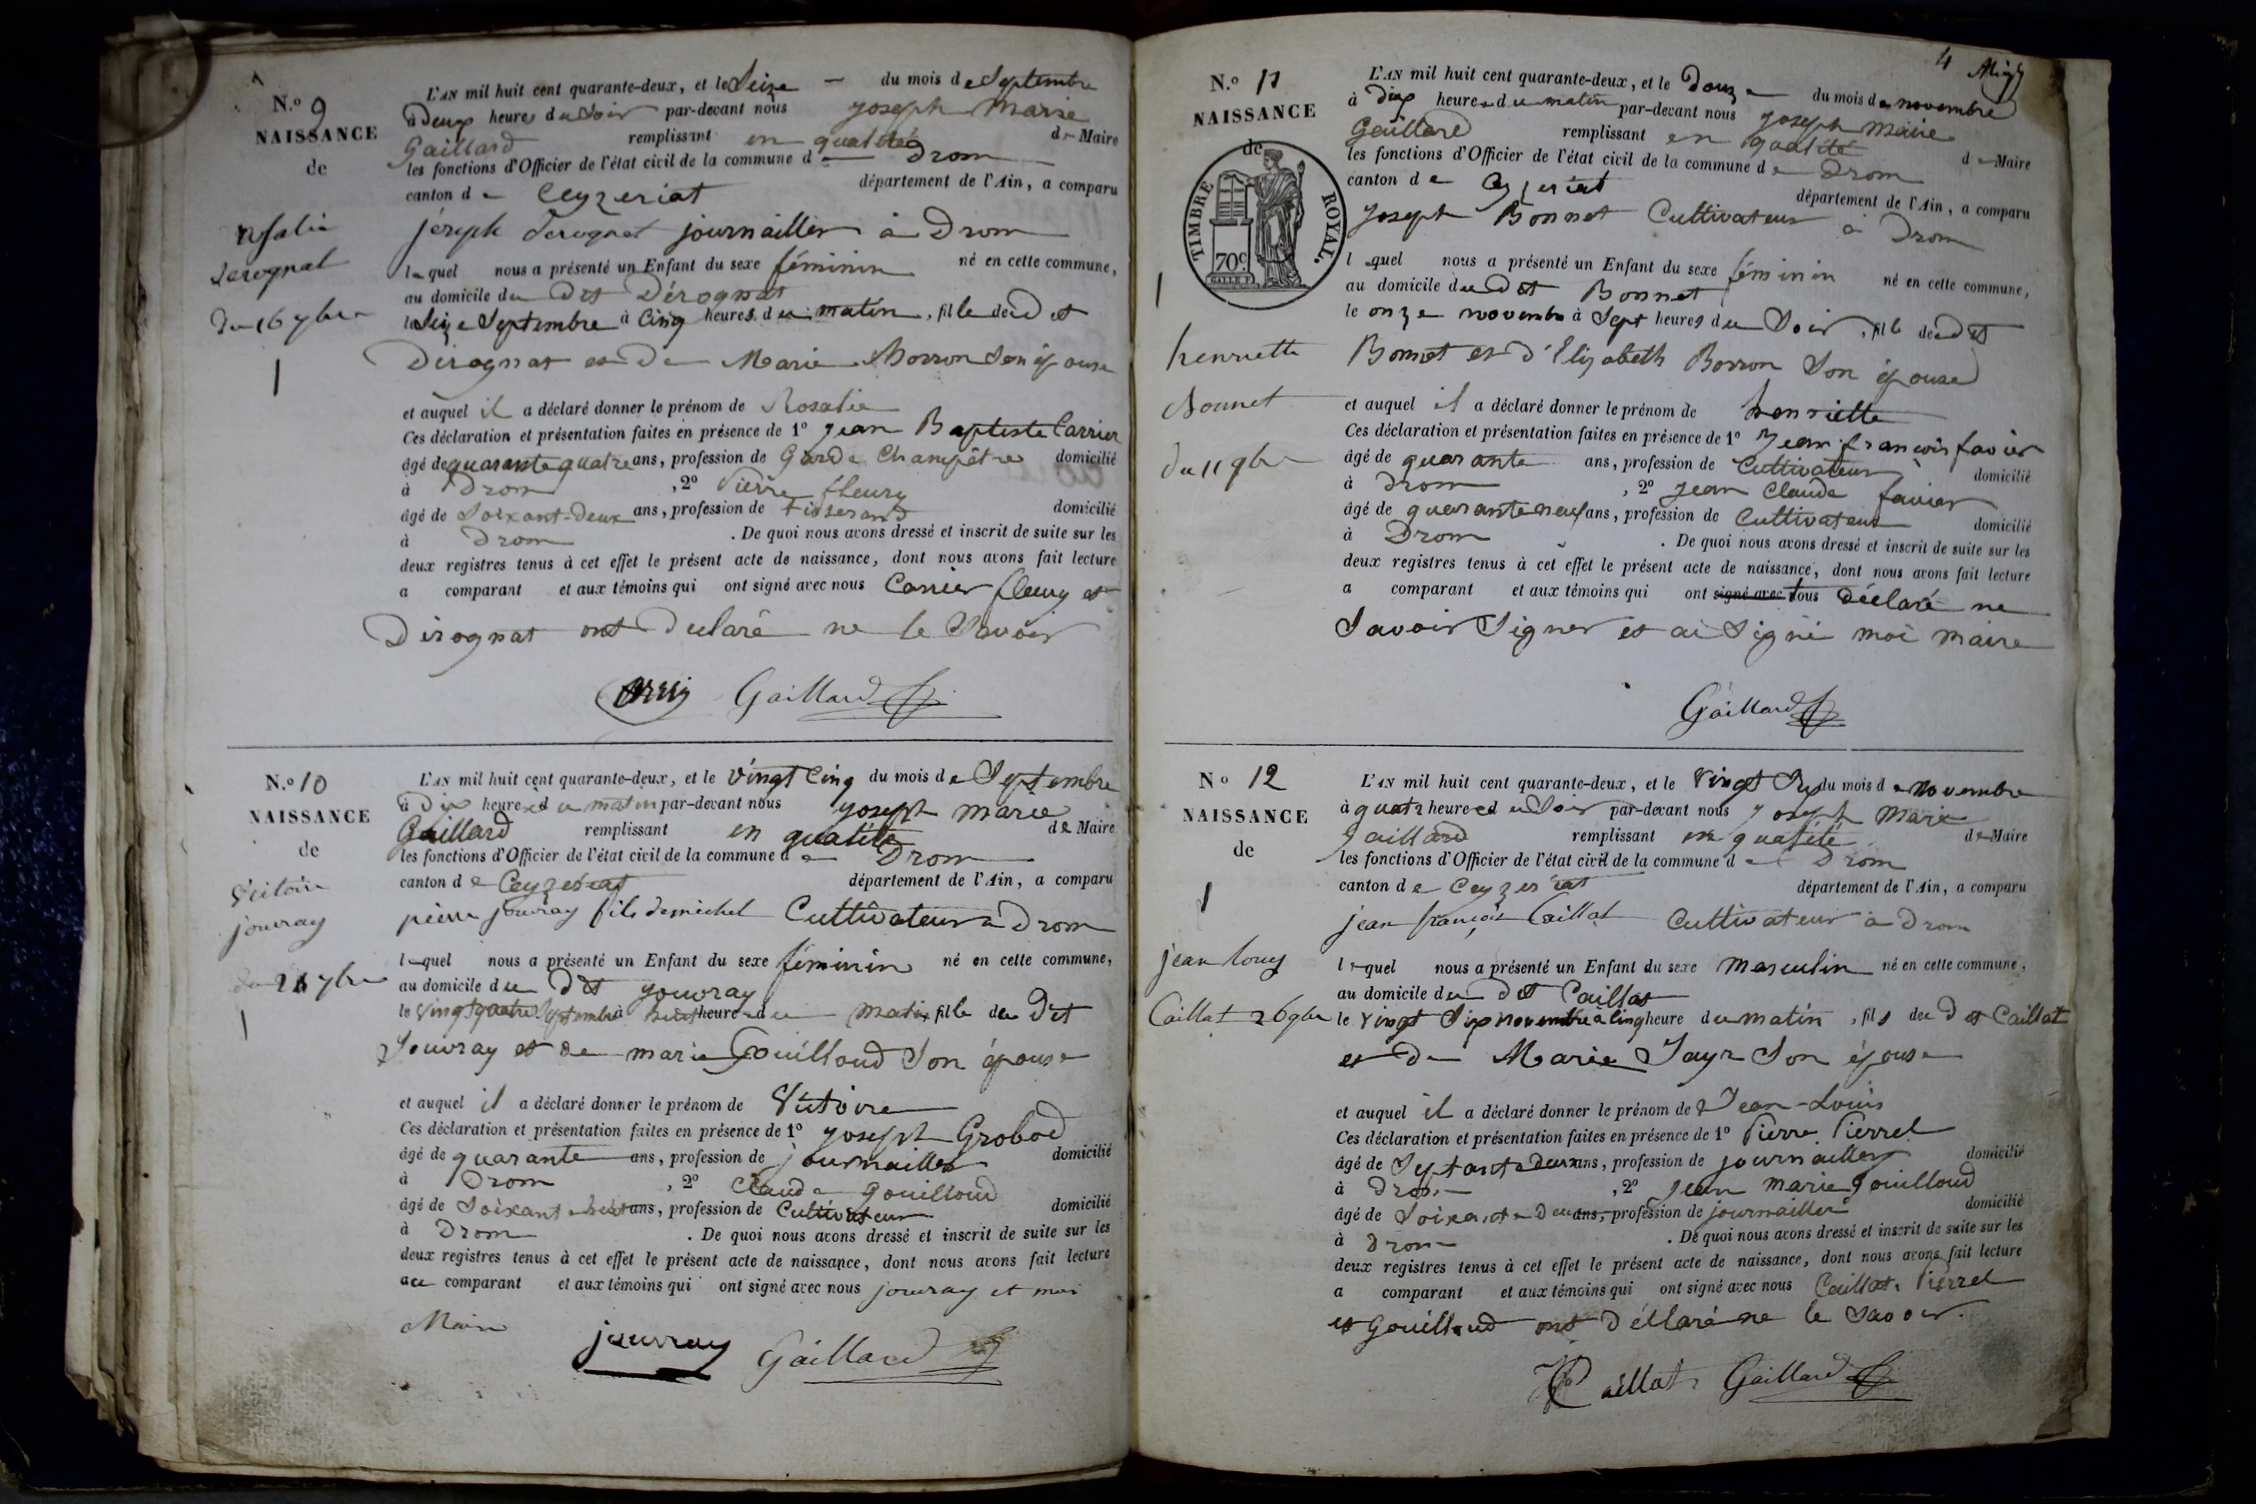 N.o 9
NAISSANCE
de
rosalie
derognat
du 16 7bre
1
L'AN mil huit cent quarante-deux, et le Seize — du mois de Septembre
à Deux heures du Soir par-devant nous Joseph Marie
Gaillard remplissant en qualité de Maire
les fonctions d'Officier de l'état civil de la commune de Drom
canton de Ceyzeriat département de l'Ain, a comparu
Joseph Derognat journaillier à Drom
lequel nous a présenté un Enfant du sexe féminin né en cette commune,
au domicile du Dit Dérognat
le Seize Septembre à Cinq heures du matin, fille du Dit
Dérognat et De Marie Borron Son épouse
et auquel il a déclaré donner le prénom de Rosalie
Ces déclaration et présentation faites en présence de 1o Jean Baptiste Carrier
âgé de quarante quatre ans, profession de Garde Champêtre domicilié
à Drom , 2o Pierre fleury
âgé de Soixant-Deux ans, profession de tisserand domicilié
à Drom . De quoi nous avons dressé et inscrit de suite sur les
deux registres tenus à cet effet le présent acte de naissance, dont nous avons fait lecture
a comparant et aux témoins qui ont signé avec nous Carrier fleury et
Dérognat ont Déclaré ne le Savoir
Gaillard
N.o 10
NAISSANCE
de
Victoire
jouvray
du 24 7bre
1
L'AN mil huit cent quarante-deux, et le Vingt Cinq du mois de Septembre
à Dix heures du matin par-devant nous Joseph Marie
Gaillard remplissant en qualité de Maire
les fonctions d'Officier de l'état civil de la commune de Drom
canton de Ceyzériat département de l'Ain, a comparu
pierre jouvray fils de michel Cultivateur à Drom
lequel nous a présenté un Enfant du sexe féminin né en cette commune,
au domicile du Dit Jouvray
le Vingt quatre Septembre à huit heures du matin fille du Dit
Jouvray et de marie Gouilloud Son épouse
et auquel il a déclaré donner le prénom de Victoire
Ces déclaration et présentation faites en présence de 1o Joseph Grobod
âgé de quarante ans, profession de journaillier domicilié
à Drom , 2o Claude Gouilloud
âgé de Soixante huit ans, profession de Cultivateur domicilié
à Drom . De quoi nous avons dressé et inscrit de suite sur les
deux registres tenus à cet effet le présent acte de naissance, dont nous avons fait lecture
au comparant et aux témoins qui ont signé avec nous jouvray et moi
Maire
jouvray Gaillard
4
N.o 11
NAISSANCE
de
TIMBRE ROYAL.
70c
1
henriette
Bonnet
du 11 9bre
L'AN mil huit cent quarante-deux, et le Douze du mois de novembre
à Dix heures du matin par-devant nous Joseph Marie
Gaillard remplissant en qualité de Maire
les fonctions d'Officier de l'état civil de la commune de Drom
canton de Ceyzeriat département de l'Ain, a comparu
Joseph Bonnet Cultivateur à Drom
lequel nous a présenté un Enfant du sexe féminin né en cette commune,
au domicile du Dit Bonnet
le onze novembre à Sept heures du Soir, fille du Dit
Bonnet et d'Elizabeth Borron Son épouse
et auquel il a déclaré donner le prénom de henriette
Ces déclaration et présentation faites en présence de 1o Jean-françois favier
âgé de quarante ans, profession de Cultivateur domicilié
à Drom , 2o Jean Claude favier
âgé de quarante neuf ans, profession de Cultivateur domicilié
à Drom . De quoi nous avons dressé et inscrit de suite sur les
deux registres tenus à cet effet le présent acte de naissance, dont nous avons fait lecture
a comparant et aux témoins qui ont signé avec tous Déclaré ne
Savoir Signer et ai Signé moi maire
Gaillard
No 12
NAISSANCE
de
1
jean louis
Caillat 26 9bre
L'AN mil huit cent quarante-deux, et le Vingt Six du mois de novembre
à quatre heures du Soir par-devant nous Joseph Marie
Gaillard remplissant en qualité de Maire
les fonctions d'Officier de l'état civil de la commune de Drom
canton de Ceyzeriat département de l'Ain, a comparu
jean françois Caillat Cultivateur à Drom
lequel nous a présenté un Enfant du sexe masculin né en cette commune,
au domicile du Dit Caillat
le Vingt Six novembre à Cinq heure du matin, fils du Dit Caillat
et De Marie Jayr Son épouse
et auquel il a déclaré donner le prénom de Jean-Louis
Ces déclaration et présentation faites en présence de 1o Pierre Pierrel
âgé de Septante Deux ans, profession de journaillier domicilié
à Drom , 2o Jean Marie Gouilloud
âgé de Soixante Deux ans, profession de journaillier domicilié
à Drom . De quoi nous avons dressé et inscrit de suite sur les
deux registres tenus à cet effet le présent acte de naissance, dont nous avons fait lecture
a comparant et aux témoins qui ont signé avec nous Caillat Pierrel
et Gouilloud ont Déclaré ne le Savoir.
Caillat Gaillard